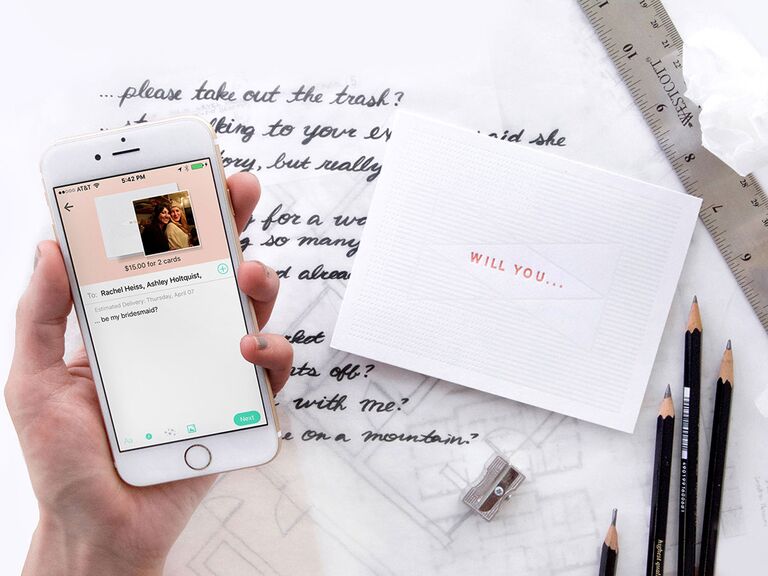 ...please take out the trash?
king to your ex said she
ory, but really
for a wa
g so many
d already
rket
nts off?
with me?
e on a mountain?
AT&T 5:42 PM
$15.00 for 2 cards
To: Rachel Heiss, Ashley Holtquist,
Estimated Delivery: Thursday, April 07
... be my bridesmaid?
Aa
Next
WILL YOU...
WESTCOTT
10
9
8
7